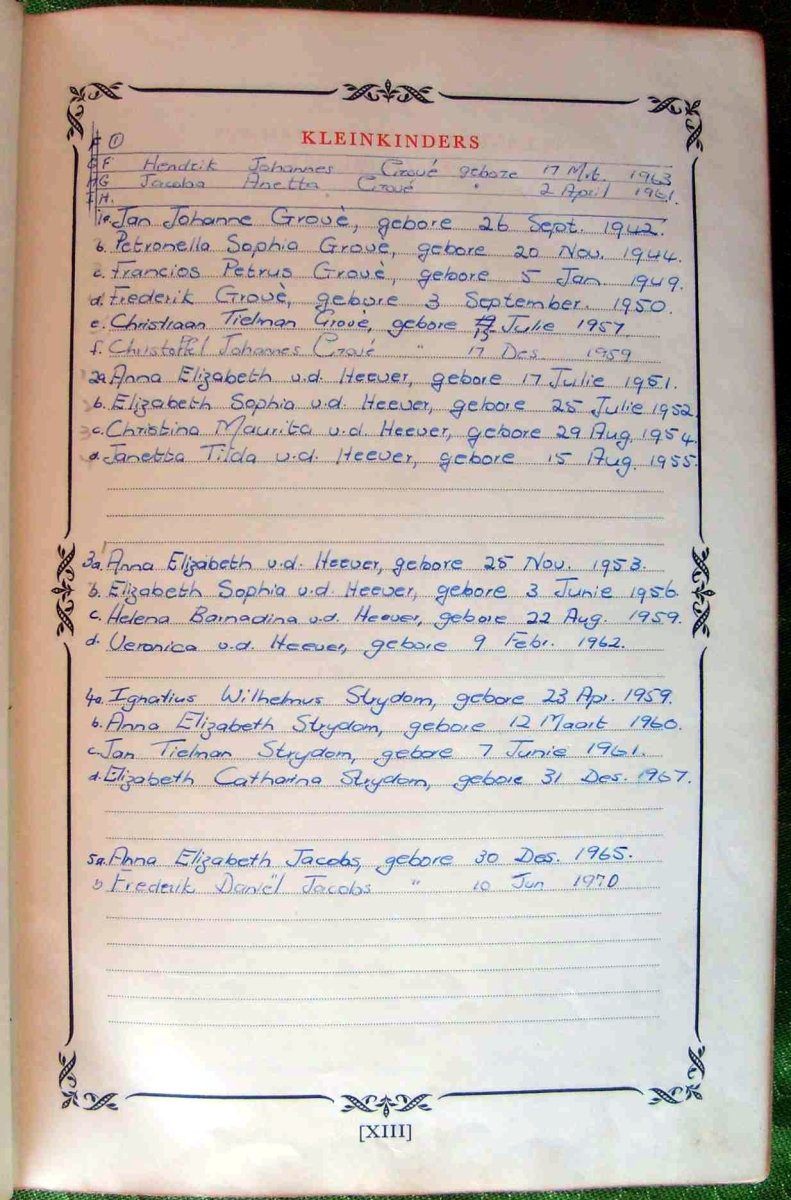 KLEINKINDERS
①
F Hendrik Johannes Groué gebore 17 Mrt. 1963
G Jacoba Anetta Groué " 2 April 1961.
H.
1a. Jan Johanne Grouè, gebore 26 Sept. 1942.
b. Petronella Sophia Grouè, gebore 20 Nov. 1944.
c. Francios Petrus Grouè, gebore 5 Jan. 1949.
d. Frederik Grouè, gebore 3 September. 1950.
e. Christiaan Tielman Grouè, gebore 13 Julie 1957
f. Christoffel Johannes Groué " 17 Des. 1959
2a. Anna Elizabeth v.d. Heever, gebore 17 Julie 1951.
b. Elizabeth Sophia v.d. Heever, gebore 25 Julie 1952.
c. Christina Maurita v.d. Heever, gebore 29 Aug. 1954.
d. Janetta Tilda v.d. Heever, gebore 15 Aug. 1955.
3a. Anna Elizabeth v.d. Heever, gebore 25 Nov. 1953.
b. Elizabeth Sophia v.d. Heever, gebore 3 Junie 1956.
c. Helena Barnadina v.d. Heever, gebore 22 Aug. 1959.
d. Veronica v.d. Heever, gebore 9 Febr. 1962.
4a. Ignatius Wilhelmus Strydom, gebore 23 Apr. 1959.
b. Anna Elizabeth Strydom, gebore 12 Maart 1960.
c. Jan Tielman Strydom, gebore 7 Junie 1961.
d. Elizabeth Catharina Strydom, gebore 31 Des. 1967.
5a. Anna Elizabeth Jacobs, gebore 30 Des. 1965.
b Frederik Daniël Jacobs " 10 Jun 1970
[XIII]